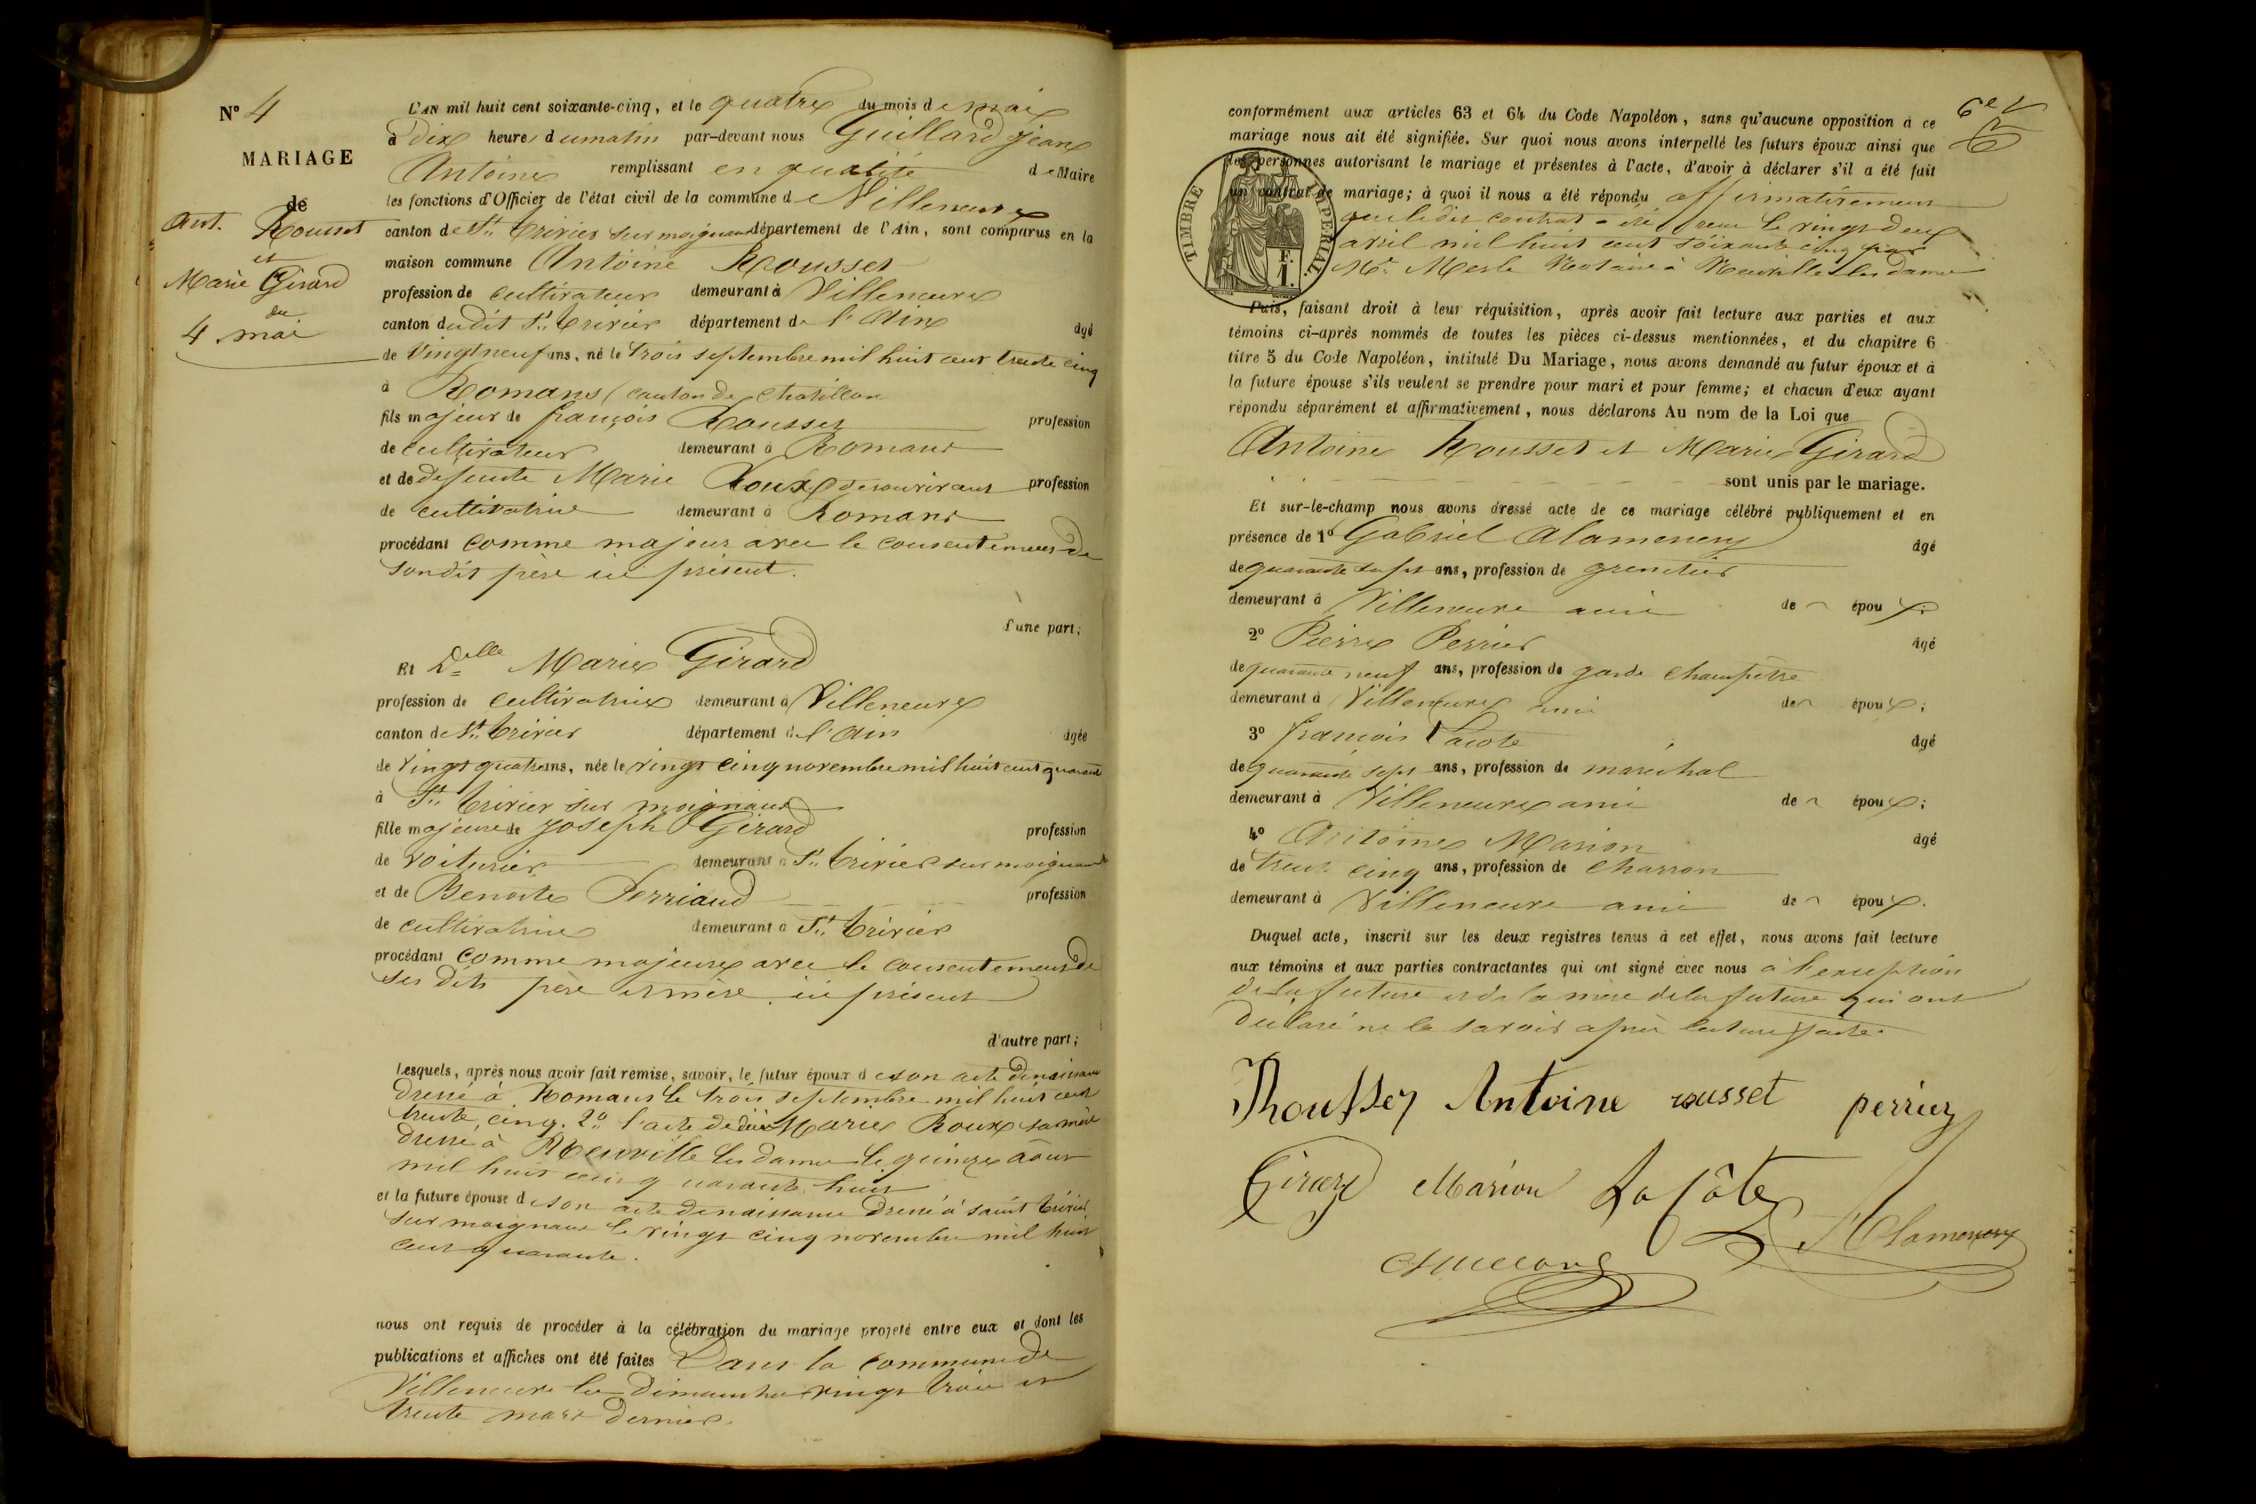 N° 4
MARIAGE
de
Ant. Rousset
et
Marie Girard
du
4 mai
L'AN mil huit cent soixante-cinq, et le quatre du mois de mai
à dix heures du matin par-devant nous Guillard Jean
Antoine remplissant en qualité de Maire
les fonctions d'Officier de l'état civil de la commune de Villeneuve
canton de St Trivier sur moignans département de l'Ain, sont comparus en la
maison commune Antoine Rousset
profession de cultivateur demeurant à Villeneuve
canton dudit St Trivier département de l'Ain âgé
de vingt neuf ans, né le trois septembre mil huit cent trente cinq
à Romans (canton de Chatillon
fils majeur de françois Rousset profession
de cultivateur demeurant à Romans
et de défunte Marie Roux de son vivant profession
de cultivatrice demeurant à Romans
procédant comme majeur avec le consentement de
sondit père ici présent.
d'une part;
Et Delle Marie Girard
profession de cultivatrice demeurant à Villeneuve
canton de St Trivier département de l'Ain âgée
de vingt quatre ans, née le vingt cinq novembre mil huit cent quarante
à St Trivier sur moignans
fille majeure de joseph Girard profession
de voiturier demeurant à St Trivier sur moignans
et de Benoite Perriaud profession
de cultivatrice demeurant à St Trivier
procédant comme majeure avec le consentement de
ses dits père et mère ici présent
d'autre part;
Lesquels, après nous avoir fait remise, savoir, le futur époux de son acte de naissance
dressé à Romans le trois septembre mil huit cent
trente cinq. 2° l'acte de décès Marie Roux sa mère
dressé à Neuville les dames le quinze août
mil huit cent quarante huit
et la future épouse de son acte de naissance dressé à saint trivier
sur moignans le vingt cinq novembre mil huit
cent quarante.
nous ont requis de procéder à la célébration du mariage projeté entre eux et dont les
publications et affiches ont été faites Dans la commune de
Villeneuve les dimanches vingt trois et
trente mars dernier.
6e
conformément aux articles 63 et 64 du Code Napoléon, sans qu'aucune opposition à ce
mariage nous ait été signifiée. Sur quoi nous avons interpellé les futurs époux ainsi que
les personnes autorisant le mariage et présentes à l'acte, d'avoir à déclarer s'il a été fait
un contrat de mariage; à quoi il nous a été répondu affirmativement
que ledit contrat a été reçu le vingt deux
avril mil huit cent soixante cinq par
Me Merle Notaire à Neuville les dames
TIMBRE IMPERIAL
F.
1.
Puis, faisant droit à leur réquisition, après avoir fait lecture aux parties et aux
témoins ci-après nommés de toutes les pièces ci-dessus mentionnées, et du chapitre 6
titre 5 du Code Napoléon, intitulé Du Mariage, nous avons demandé au futur époux et à
la future épouse s'ils veulent se prendre pour mari et pour femme; et chacun d'eux ayant
répondu séparément et affirmativement, nous déclarons Au nom de la Loi que
Antoine Rousset et Marie Girard
sont unis par le mariage.
Et sur-le-champ nous avons dressé acte de ce mariage célébré publiquement et en
présence de 1° Gabriel Alamenery âgé
de quarante sept ans, profession de grenetier
demeurant à Villeneuve ami de époux;
2° Pierre Perrier âgé
de quarante neuf ans, profession de garde champêtre
demeurant à Villeneuve ami de époux;
3° françois Lacote âgé
de quarante sept ans, profession de maréchal
demeurant à Villeneuve ami de époux;
4° Antoine Marion âgé
de trente cinq ans, profession de charron
demeurant à Villeneuve ami de époux.
Duquel acte, inscrit sur les deux registres tenus à cet effet, nous avons fait lecture
aux témoins et aux parties contractantes qui ont signé avec nous à l'exception
de la future et de la mère de la future qui ont
déclaré ne le savoir après lecture faite.
Rousset Antoine rousset perrier
Girard Marion La Côte
Alamenery